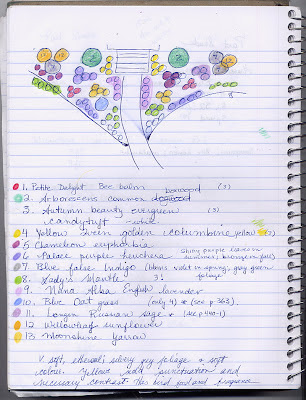 1. Petite Delight Bee balm (3)
2. Arborescens common boxwood
3. Autumn beauty evergreen (3)
candytuft -white-
4 Yellow Queen golden columbine yellow (3)
5 Chameleon euphorbia
6 Palace purple heuchera (shiny purple leaves in summer, bronze in fall)
7 Blue false Indigo (blooms violet in spring, gray green foliage)
8. Lady's Mantle 3!
9. Nana Alba English lavender
10. Blue Oat grass (only 4) * (see p 363)
11. Longin Russian sage * (see p 440-1)
12 Willowleaf sunflower
13 Moonshine Yarrow
soft, ethereal, silvery grey foliage & soft
colour. Yellows add punctuation and
necessary contrast. This bird food and fragrance